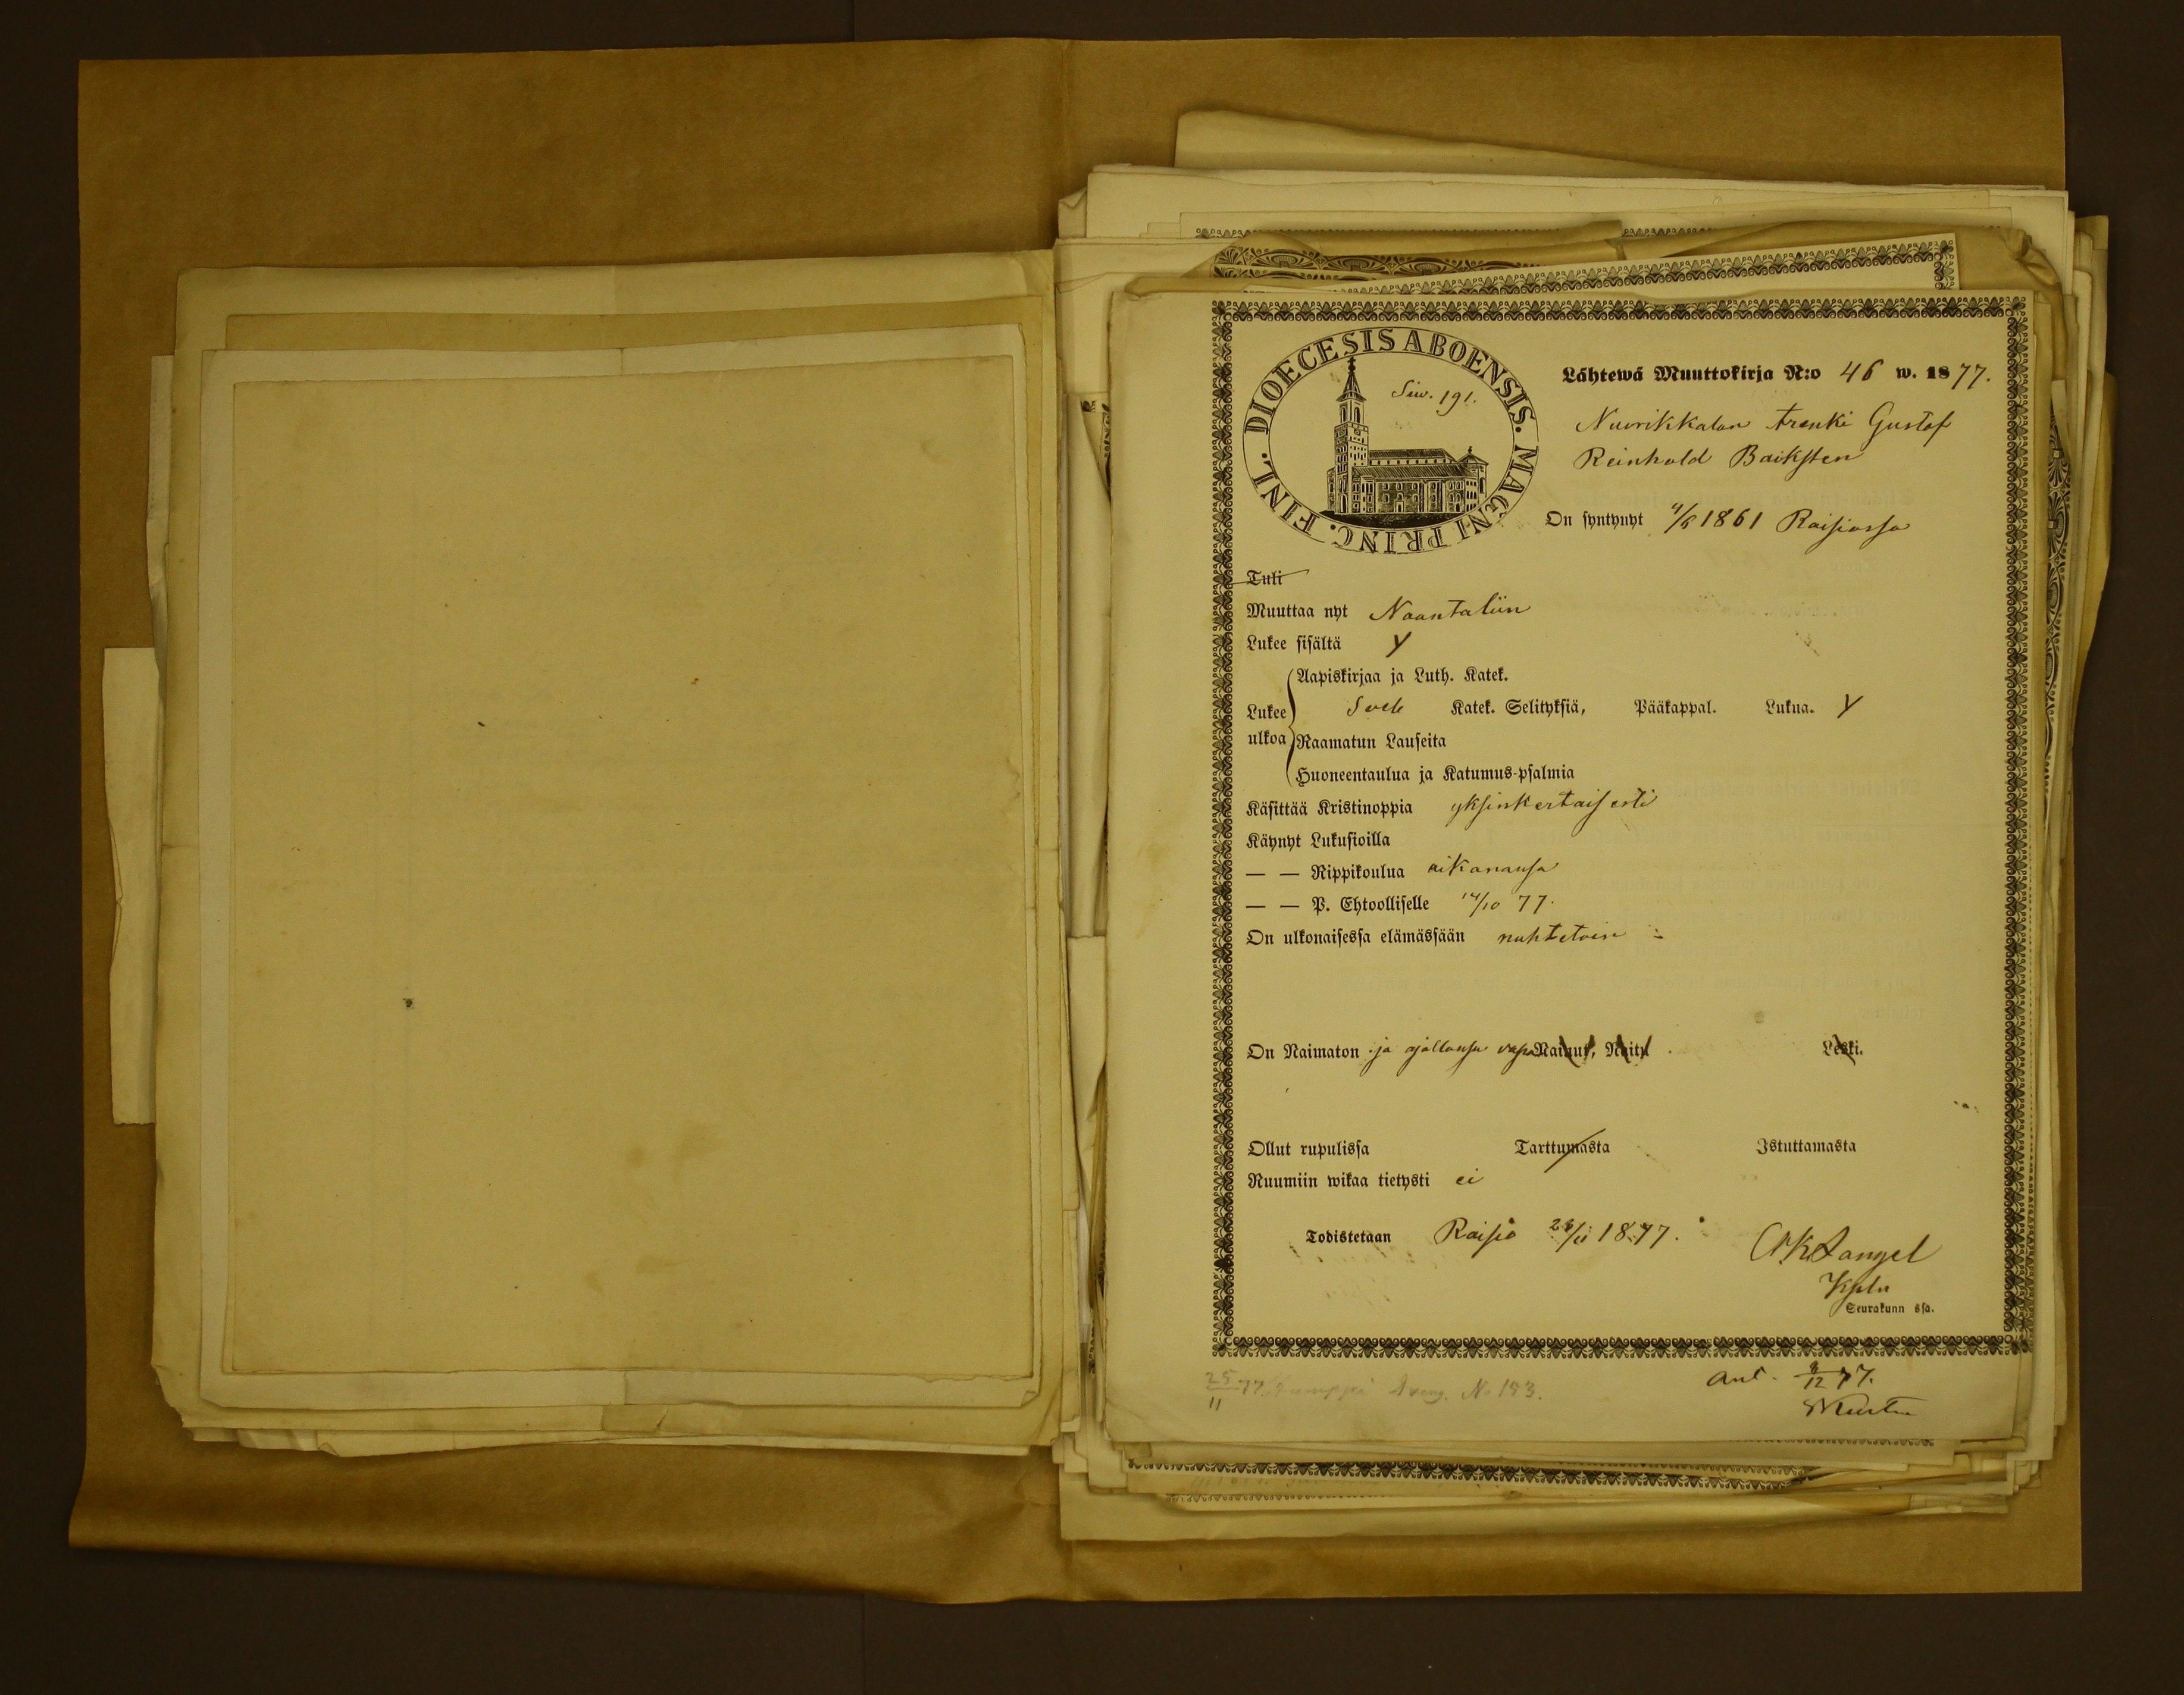 DIOECESIS ABOENSIS. MAGNI PRINC. FINL.
Siw. 191.
Lähtewä Muuttokirja N:o 46 w. 1877.
Nuorikkalan trenki Gustof
Reinhold Baiksten
On syntynyt 1861 Raisiossa
Tuli
Muuttaa nyt Naantaliin
Lukee sisältä Y
Aapiskirjaa ja Luth. Katek.
Lukee Sveb Katek. Selityksiä, Pääkappal. Lukua. Y
ulkoa Raamatun Lauseita
Huoneentaulua ja Katumus-psalmia
Käsittää Kristinoppia yksinkertaisesti
Käynyt Lukusioilla
— — Rippikoulua aikanansa
— — P. Ehtoolliselle 14/10 77.
On ulkonaisessa elämässään nuhtetoin
On Naimaton ja ajallansa vapa Nainut, Naitu Leski.
Ollut rupulissa Tarttumasta Istuttamasta
Ruumiin wikaa tietysti ei
Todistetaan Raisio 1877.
Langel
Kpln
Seurakunn ssa.
25/11 77. Dreng. No 193.
Ant. /12 77.